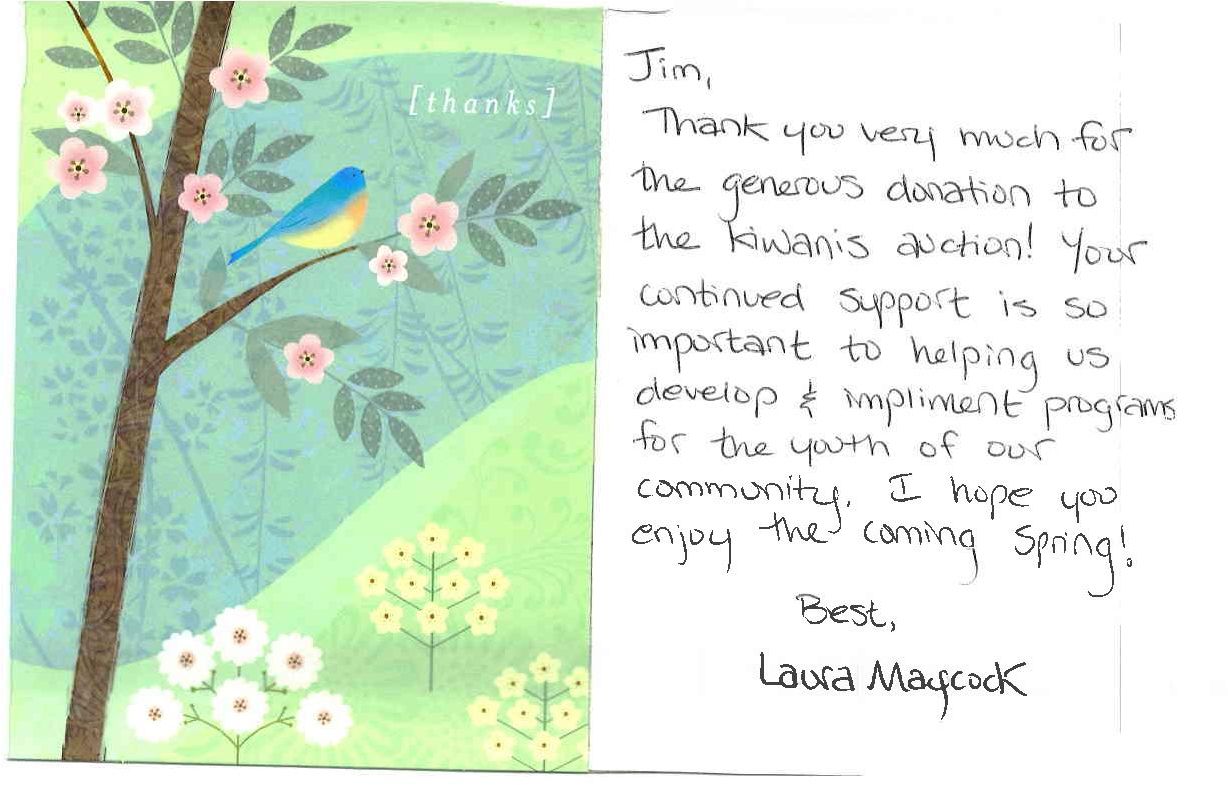 [thanks]
Jim,
Thank you very much for
the generous donation to
the Kiwanis auction! Your
continued support is so
important to helping us
develop & impliment programs
for the youth of our
community. I hope you
enjoy the coming Spring!
Best,
Laura Maycock